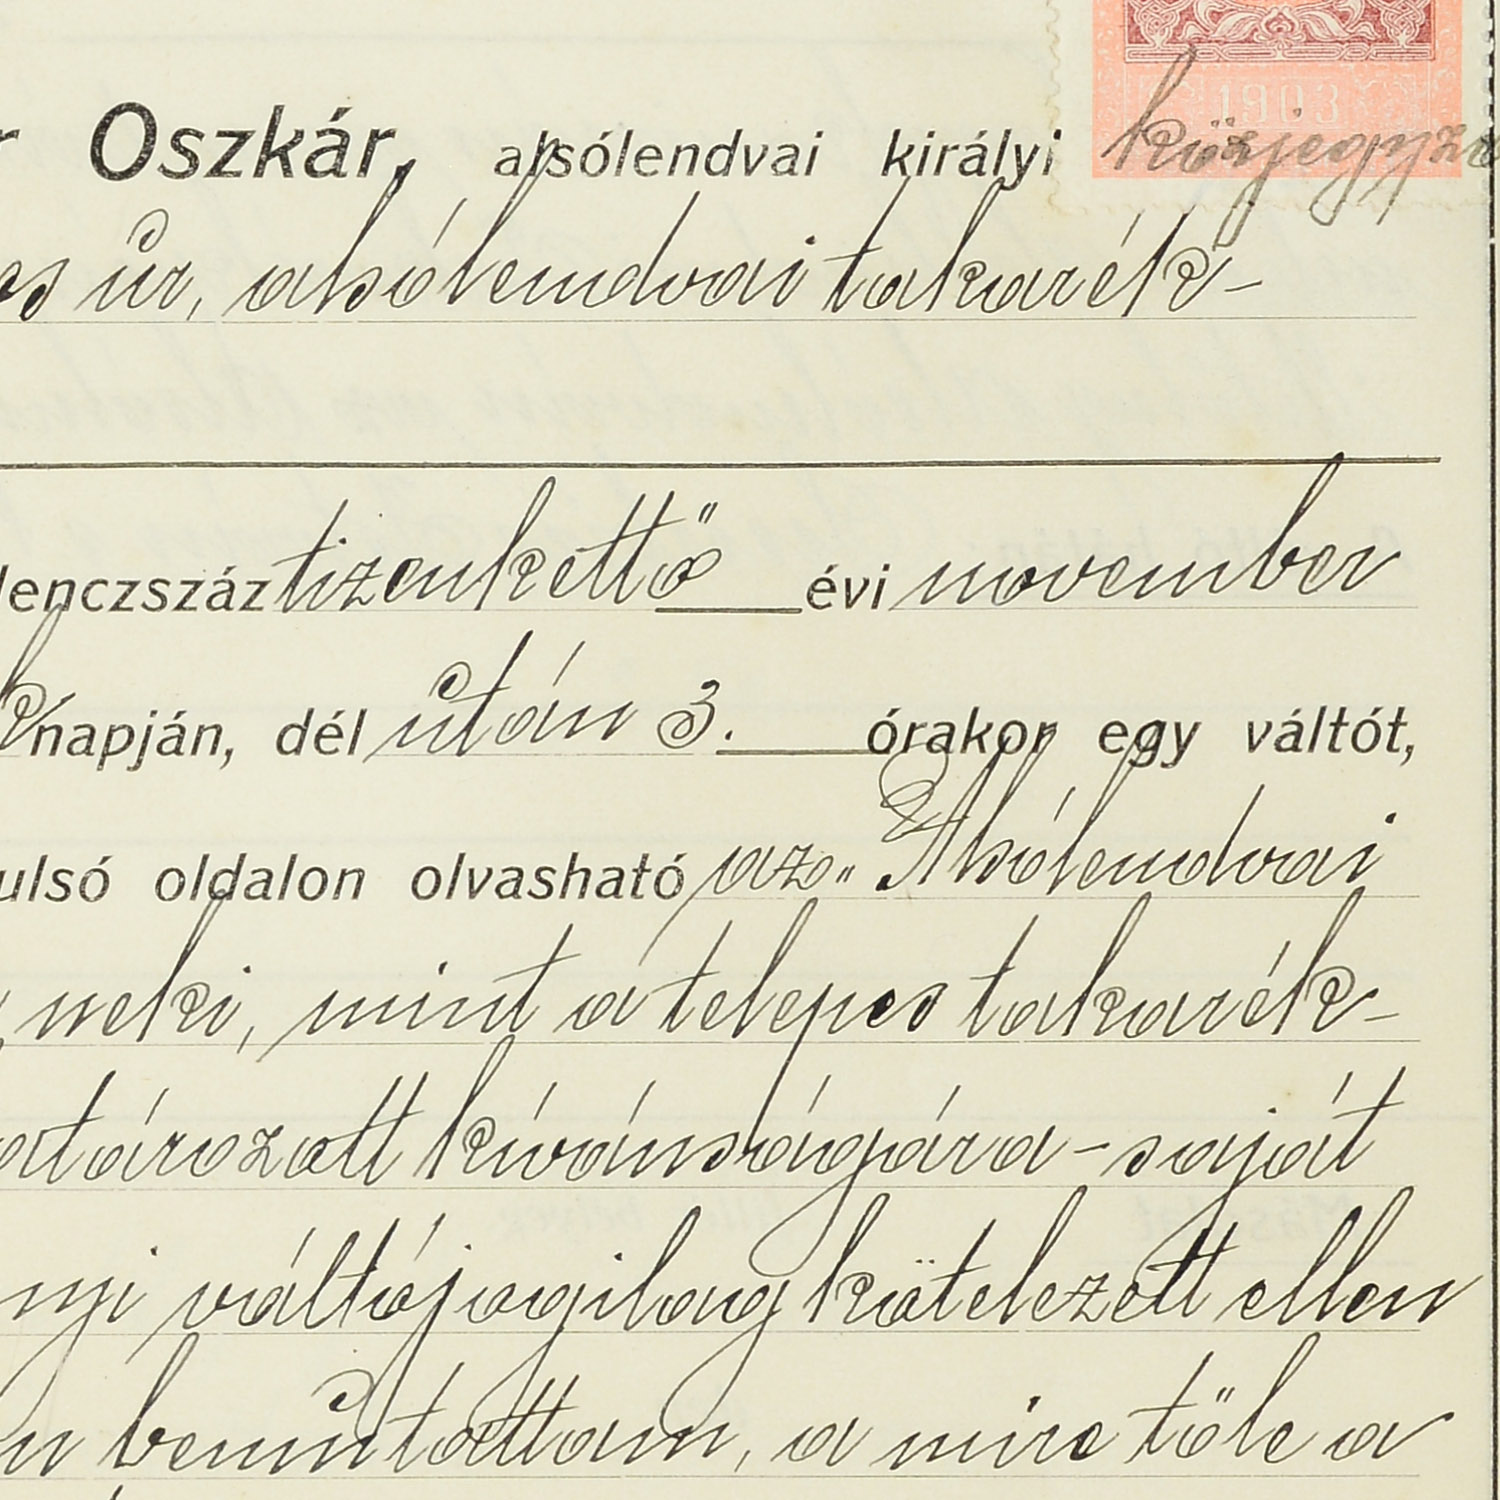 1903
r Oszkár, alsólendvai királyi közjegyző
os úr, alsólendvai takarék-
lenczszáz tizenkettő évi november
napján, dél után 3. órakor egy váltót,
ulsó oldalon olvasható az „Alsólendvai
neki, mint a telepes takarék-
atározott kívánságára - saját
nyi váltójogilag kötelezett ellen
n bemutattam, a mire tőle a